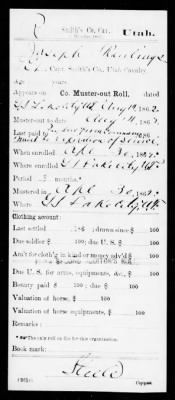 R Smith's Co. Cav. Utah.
Joseph Rawlings
Capt. Smith's Co., Utah Cavalry.
Age years
Appears on Co. Muster-out Roll, dated
G S Lake City U T Aug 14, 1862.
Muster-out to date Aug 14, 186
Last paid to
When enrolled Apl 30, 1862.
Where enrolled G S Lake City U T
Period 3 months.
Mustered in Apl 30, 1862.
Where G S Lake City U T
Clothing account:
Last settled , 186 ; drawn since $ 100
Due soldier $ 100; due U. S. $ 100
Am't for cloth'g in kind or money adv'd $ 100
Due U. S. for arms, equipments, &c., $ 100
Bounty paid $ 100; due $ 100
Valuation of horse, $ 100
Valuation of horse equipments, $ 100
Remarks:
Book mark:
Copyist.